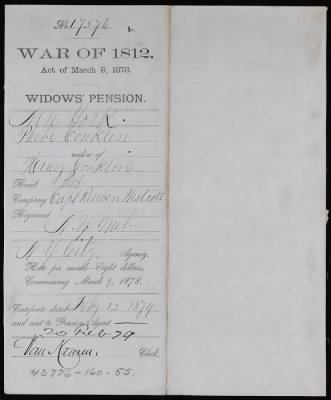 No. 17576
WAR OF 1812.
Act of March 9, 1878.
WIDOWS' PENSION.
New York.
Phebe Conklin
widow of
Henry Conklin
Rank
Company Capt Reuben
Regiment
N. Y. Mil.
N Y City Agency.
Rate per month—Eight dollars.
Commencing March 9, 1878.
Certificate dated Feby 12 1879
and sent to Pension Agent
20 Feb 79
Clerk.
43776-160-55.